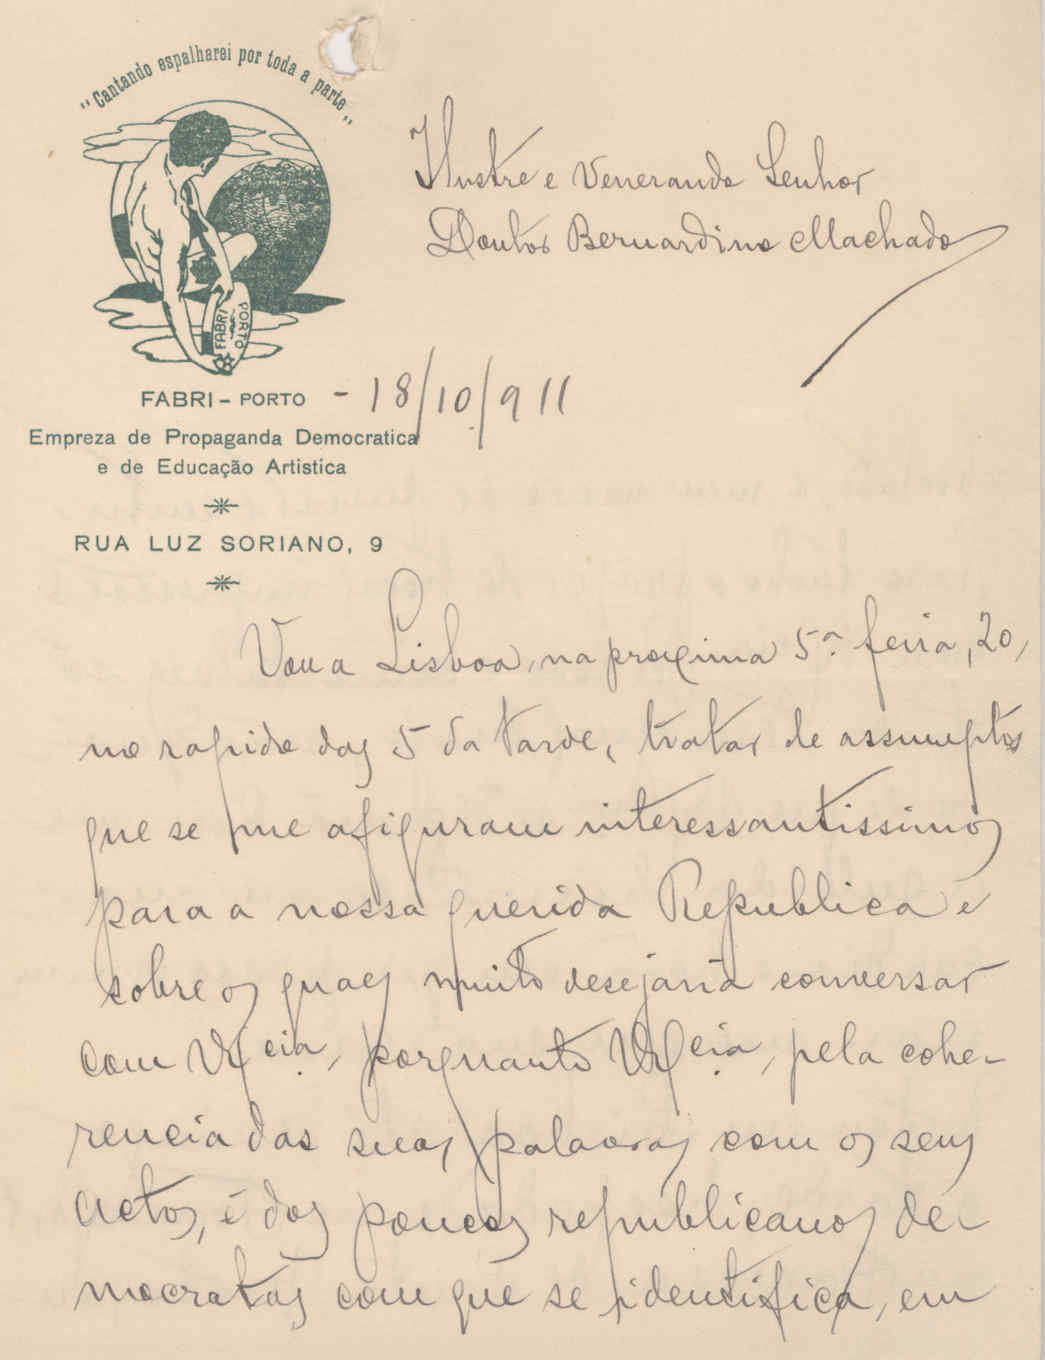 "Cantando espalharei por toda a parte"
Ilustre e Venerando Senhor
Doutor Bernardino Machado
FABRI
PORTO
FABRI - PORTO - 18/10/911
Empreza de Propaganda Democratica
e de Educação Artistica
RUA LUZ SORIANO, 9
Vou a Lisboa, na proxima 5ª feira, 20,
no rapido das 5 da tarde, tratar de assumptos
que se me afiguram interessantissimos
para a nossa querida Republica e
sobre os quaes muito desejaria conversar
com V. Ex.cia, porquanto V. Ex.cia, pela cohe-
rencia das suas palavras com os seus
actos, é dos poucos republicanos de-
mocratas com que se identifica, em